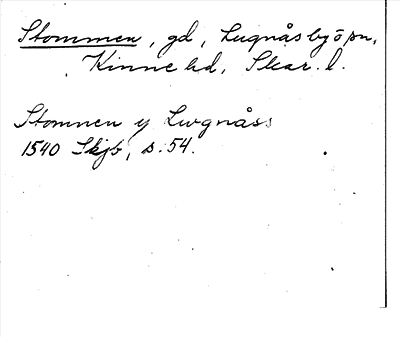 Stommen, gd, Lugnåsby ö pn,
Kinne hd, Skar. l.
Stomnen y Lwgnåss
1540 Skjb, s. 54.